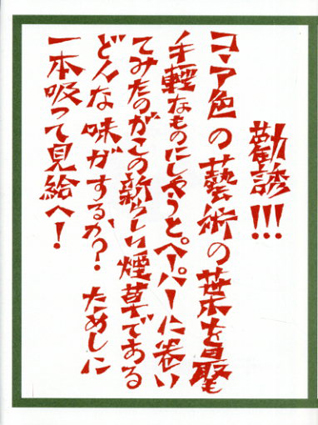 勧誘!!!
コヽア色の藝術の葉を最も
手輕なものにしやうとペーパーに巻い
てみたのがこの新らしい煙草である
どんな味がするか? ためしに
一本吸つて見給へ!